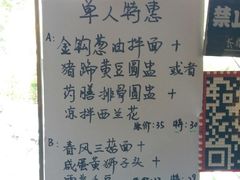 单人特惠
禁止
A: 金钩葱油拌面 +
猪蹄黄豆圆盅 或者
药膳排骨圆盅 +
凉拌西兰花
原价:35 特:30
B: 春风三越面 +
咸蛋黄狮子头 +